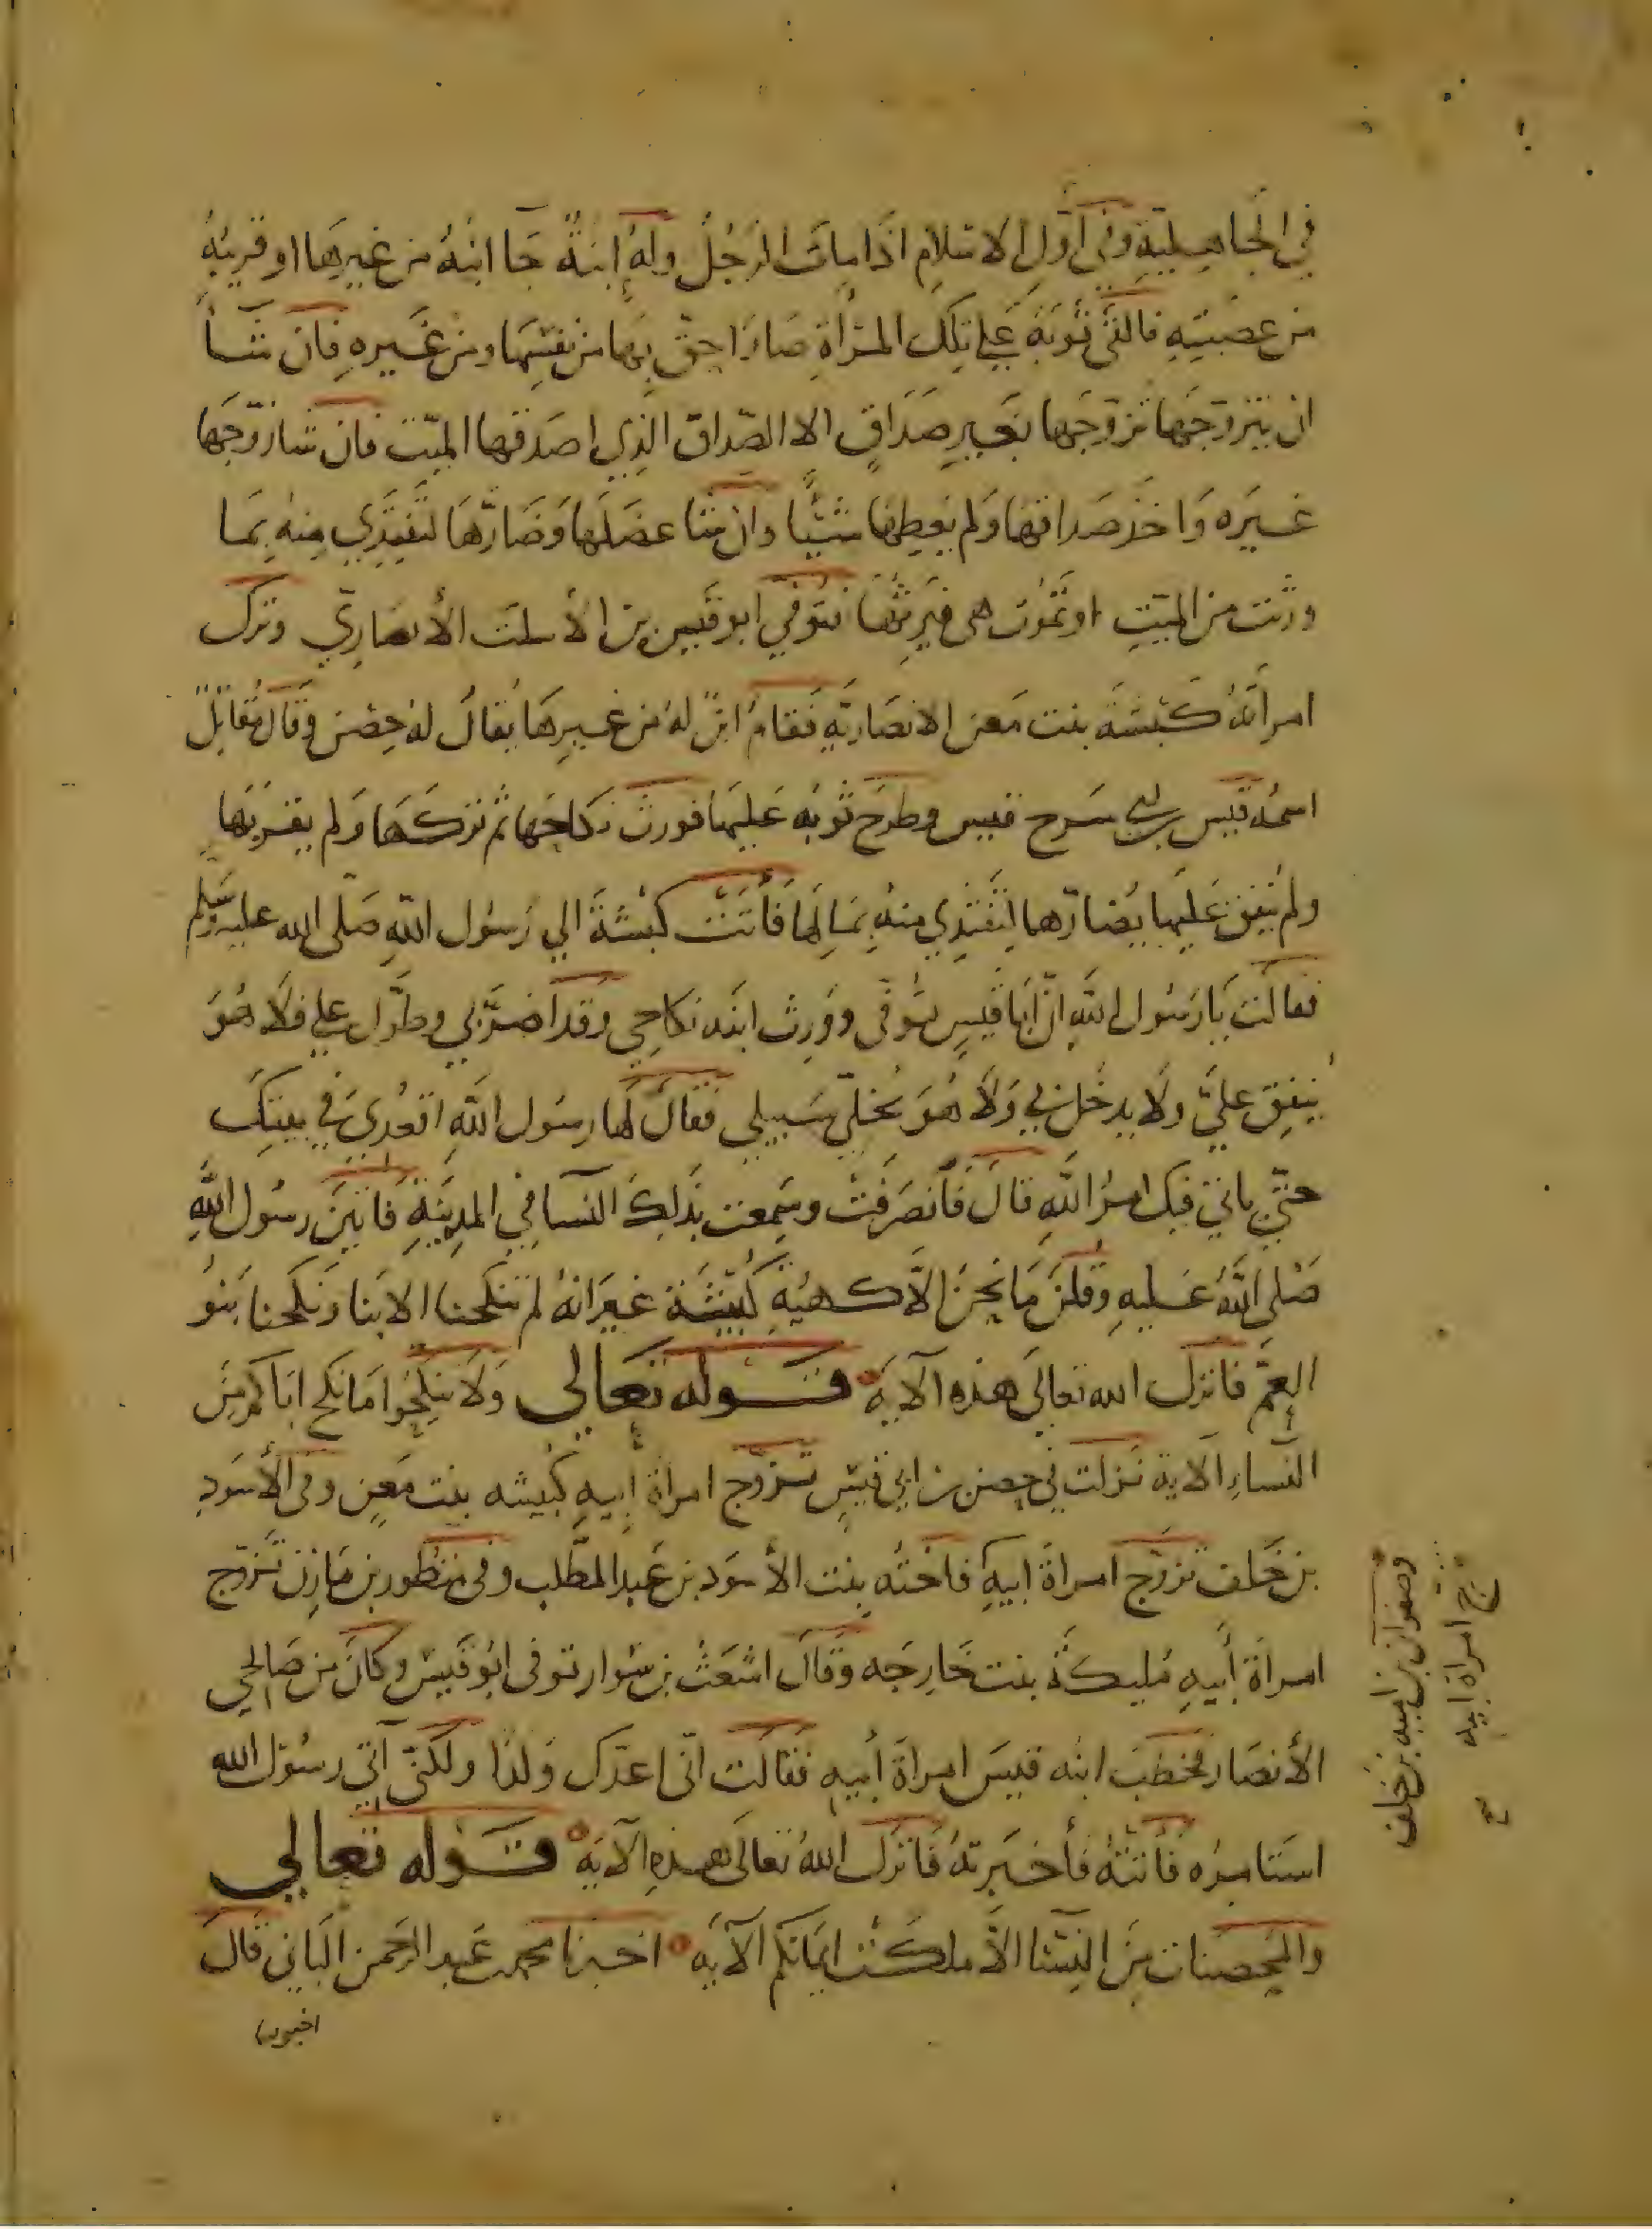 في الجاهلية وفي أول الاسلام اذا مات الرجل وله ابنة جا ابنه من غيرها او قريبه
من عصبته فالقى ثوبه على تلك المرأة صار احق بها من نفسها ومن غيره فان شآ
ان يتزوجها تزوجها بغير صداق الا الصداق الذي اصدقها الميت فان شا زوجها
غيره واخذ صداقها ولم يعطها شيئا وان شا عضلها وضارها لتفتدي منه بما
ورثت من الميت او تموت هي فيرثها فتوفي ابو قيس بن الأسلت الأنصاري وترك
امرأته كبيشة بنت معن الانصارية فقام ابن له من غيرها يقال له حصن وقال مقاتل
اسمه قيس بن ابي سرح قيس وطرح ثوبه عليها فورث نكاحها ثم تركها ولم يقربها
ولم ينفق عليها يضارها لتفتدي منه بمالها فأتت كبيشة الي رسول الله صلى الله عليه وسلم
فقالت يا رسول الله ان ابا قيس توفي وورث ابنه نكاحي وقد اضر بي وطول علي فلا هو
ينفق علي ولا يدخل بي ولا هو يخلي سبيلي فقال لها رسول الله اقعدي في بيتك
حتى ياتي فيك امر الله قال فانصرفت وسمعت بذلك النسآ في المدينة فاتين رسول الله
صلى الله عليه وقلن ما نحن الا كهيئة كبيشة غير انه لم تنكحنا الابنا ونكحنا بنو
العم فانزل الله تعالى هذه الآية قوله تعالي ولا تنكحوا ما نكح اباكم من
النساء الآية نزلت في حصن بن ابي قيس تزوج امرأة أبيه كبيشه بنت معن وفي الأسود
بن خلف تزوج امرأة ابيه فاخته بنت الأسود بن عبد المطلب وفي منظور بن مازن تزوج
امرأة أبيه مليكة بنت خارجه وقال اشعث بن سوار توفي ابو قيس وكان من صالحي
الأنصار فخطب ابنه قيس امرأة أبيه فقالت اني اعدك ولدا ولكني آتي رسول الله
استامره فأتته فأخبرته فانزل الله تعالى هذه الآية قوله تعالي
والمحصنات من النسآ الا ما ملكت ايمانكم الآية اخبرنا محمد بن عبد الرحمن الباني قال
اخبرنا
وصفوان بن اميه بن خلف
تزوج امرأة ابيه
صح